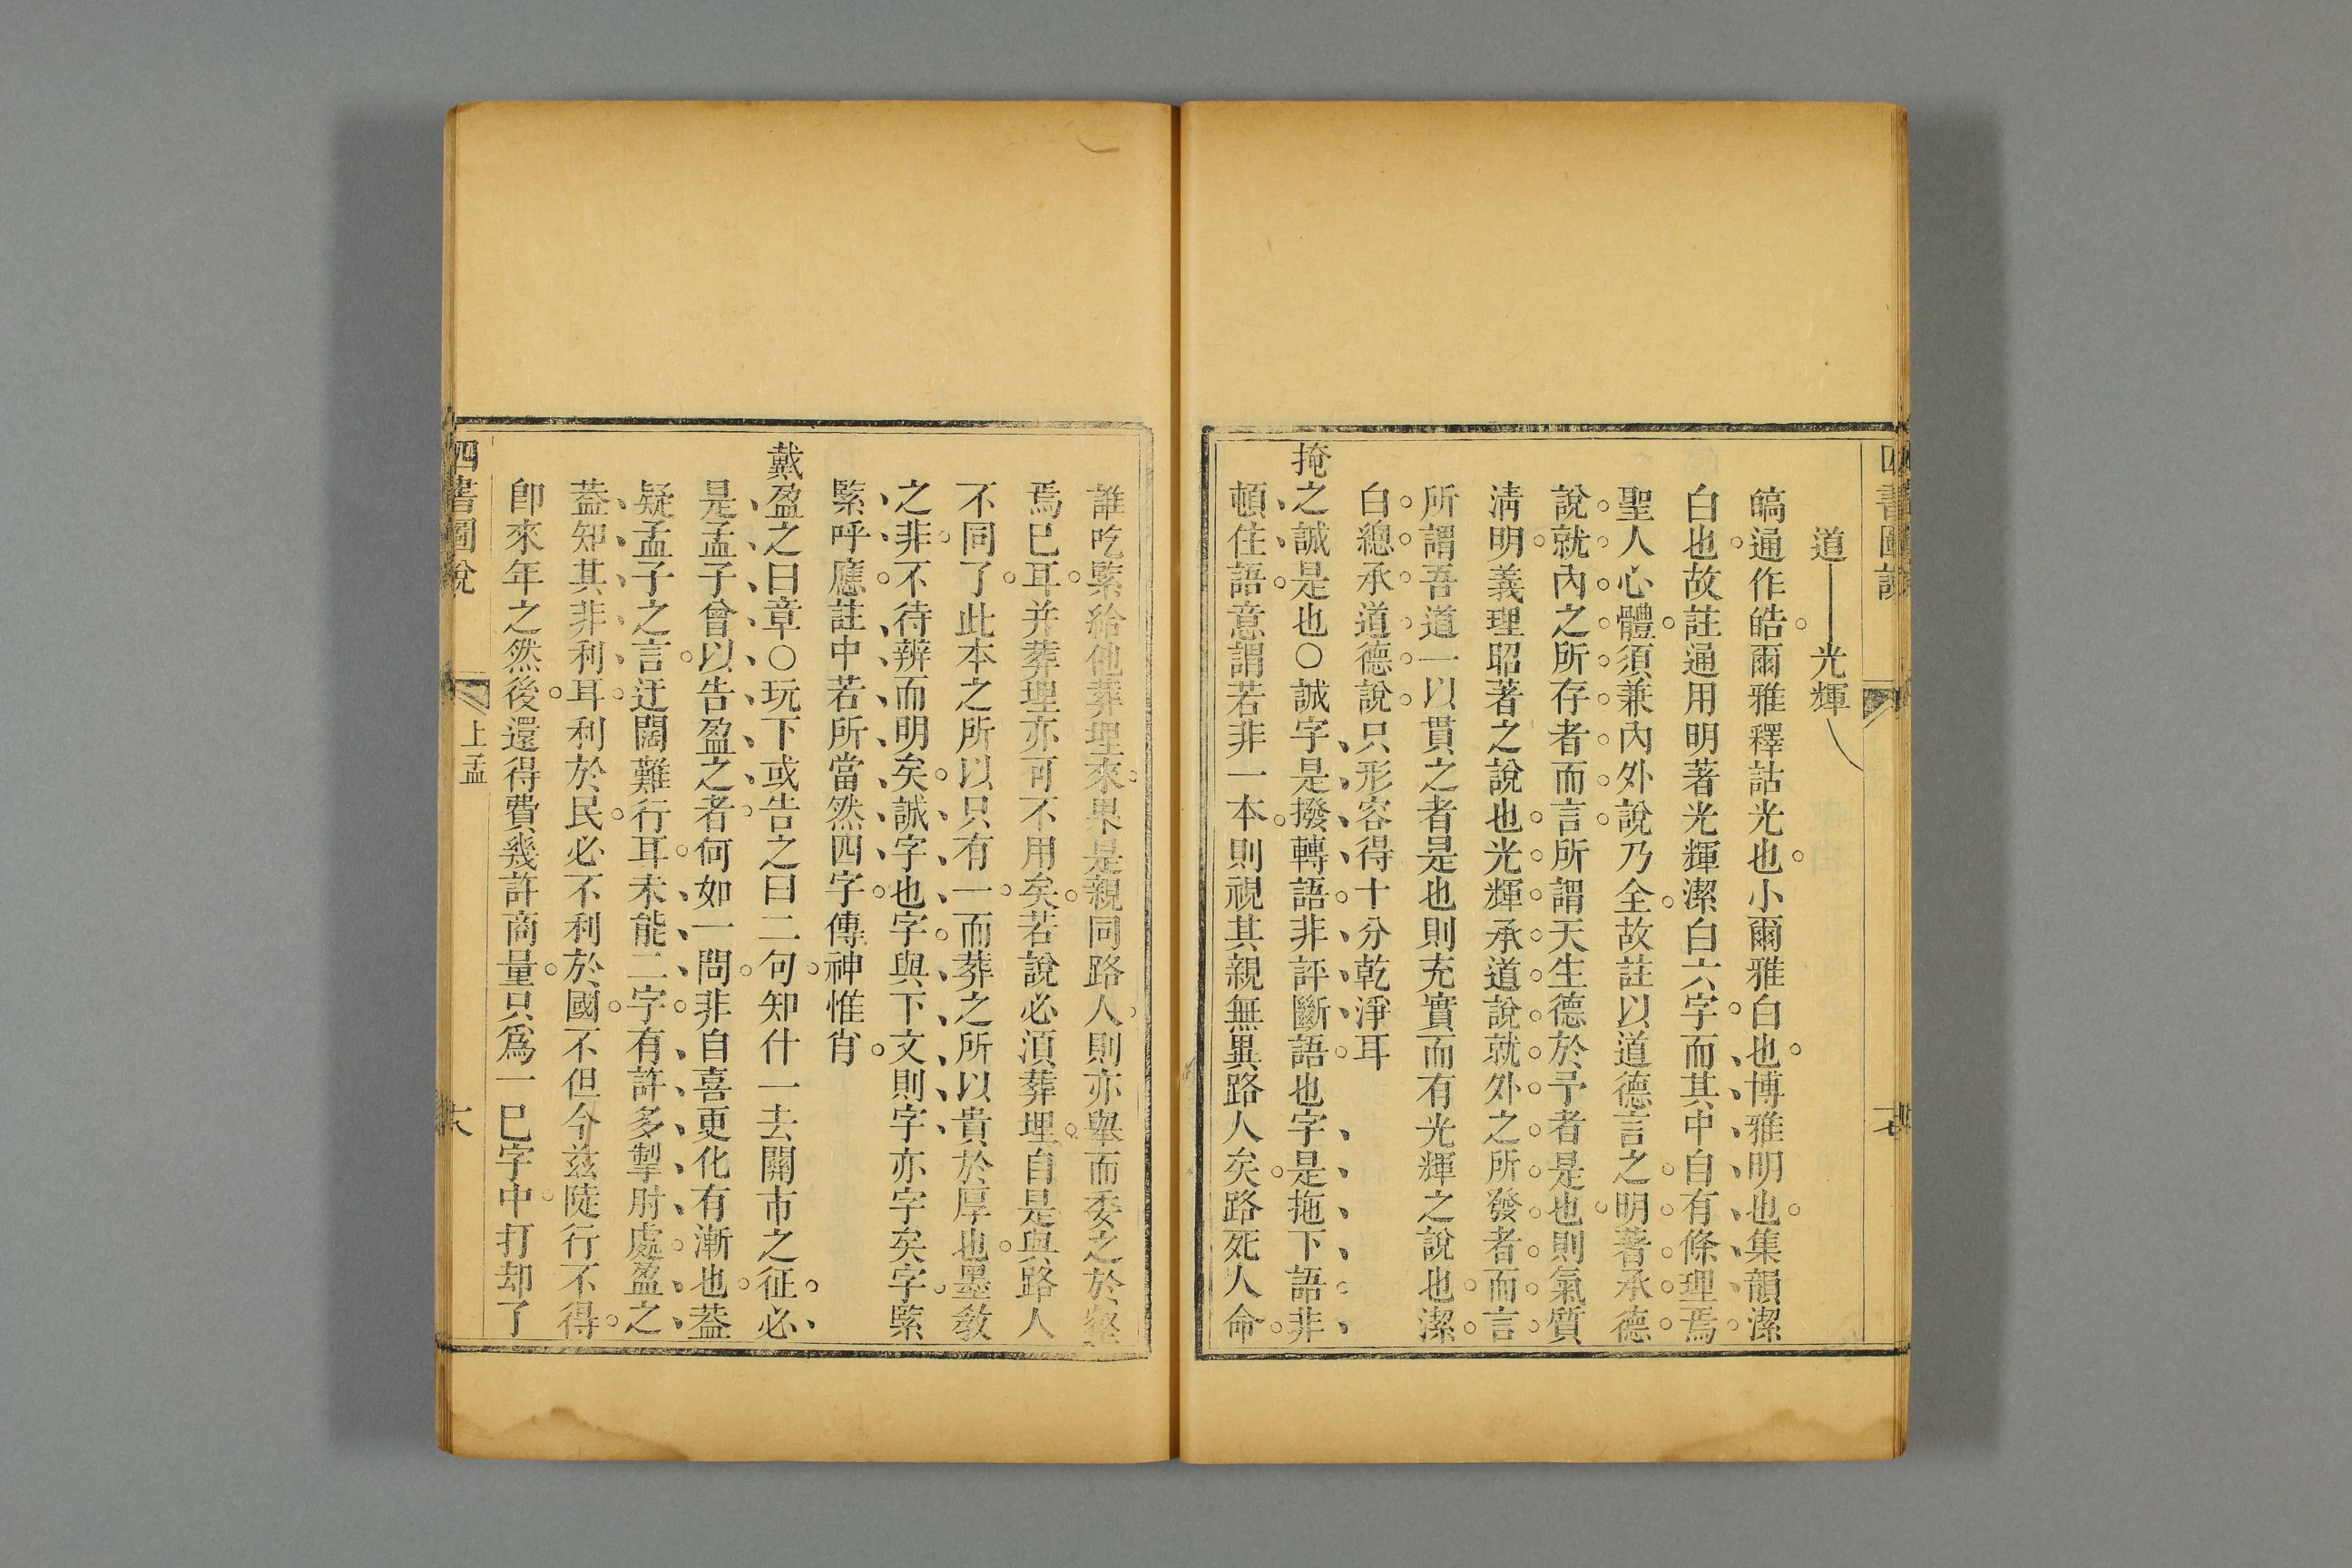 四書圖說
道——光輝
皜通作皓爾雅釋詁光也小爾雅白也博雅明也集韻潔
白也故註通用明著光輝潔白六字而其中自有條理焉
聖人心體須兼內外說乃全故註以道德言之明著承德
說就內之所存者而言所謂天生德於予者是也則氣質
淸明義理昭著之說也光輝承道說就外之所發者而言
所謂吾道一以貫之者是也則充實而有光輝之說也潔
白總承道德說只形容得十分乾淨耳
掩之誠是也○誠字是撥轉語非評斷語也字是拖下語非
頓住語意謂若非一本則視其親無異路人矣路死人命
誰吃緊給他葬埋來果是親同路人則亦舉而委之於壑
焉已耳并葬埋亦可不用矣若說必湏葬埋自是與路人
不同了此本之所以只有一而葬之所以貴於厚也墨敎
之非不待辨而明矣誠字也字與下文則字亦字矣字緊
緊呼應註中若所當然四字傳神惟肖
戴盈之曰章○玩下或告之曰二句知什一去關市之征必
是孟子曾以告盈之者何如一問非自喜更化有漸也葢
疑孟子之言迂闊難行耳未能二字有許多掣肘處盈之
葢知其非利耳利於民必不利於國不但今茲陡行不得
卽來年之然後還得費幾許商量只爲一已字中打却了
四書圖說
上孟